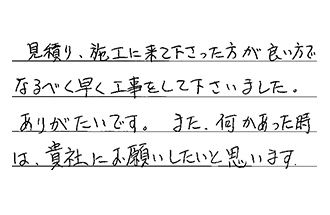 見積り、施工に来て下さった方が良い方で
なるべく早く工事をして下さいました。
ありがたいです。また、何かあった時
は、貴社にお願いしたいと思います.